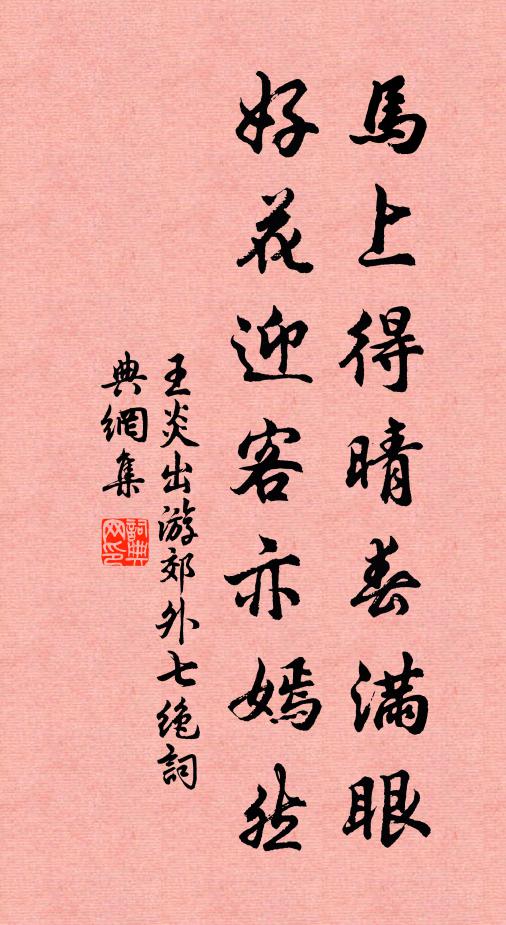 馬上得晴春滿眼
好花迎客亦嫣然
王炎出游郊外七绝詞
典網集
詞典网印